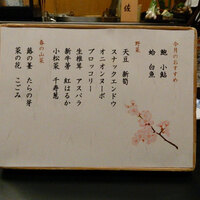 今月のおすすめ
鮑 小鮎
蛤 白魚
野菜
天豆 新筍
スナックエンドウ
オニオンヌーボ
ブロッコリー
生椎茸 アスパラ
新牛蒡 紅はるか
小松菜 千寿葱
春の山菜
蕗の薹 たらの芽
菜の花 こごみ
佐